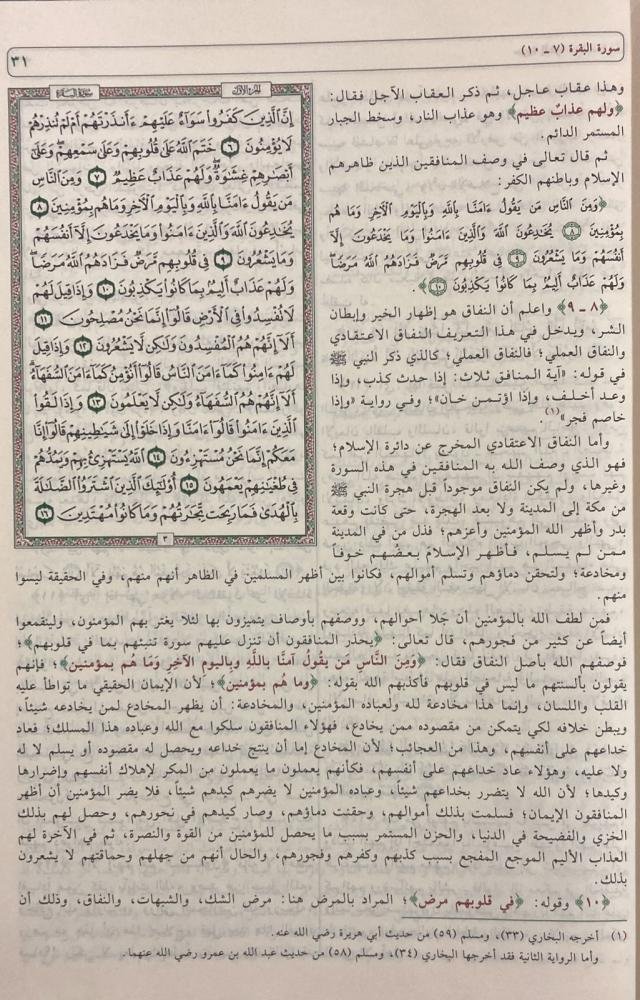 سورة البقرة (٧ ـ ١٠)
٣١
وهذا عقاب عاجل، ثم ذكر العقاب الآجل فقال:
﴿ولهم عذابٌ عظيم﴾ وهو عذاب النار، وسخط الجبار
المستمر الدائم.
ثم قال تعالى في وصف المنافقين الذين ظاهرهم
الإسلام وباطنهم الكفر:
﴿وَمِنَ النَّاسِ مَن يَقُولُ ءَامَنَّا بِاللَّهِ وَبِالْيَوْمِ الْآخِرِ وَمَا هُم
بِمُؤْمِنِينَ ٨ يُخَٰدِعُونَ اللَّهَ وَالَّذِينَ ءَامَنُوا وَمَا يَخْدَعُونَ إِلَّآ
أَنفُسَهُمْ وَمَا يَشْعُرُونَ ٩ فِى قُلُوبِهِم مَّرَضٌ فَزَادَهُمُ اللَّهُ مَرَضًا
وَلَهُمْ عَذَابٌ أَلِيمٌ بِمَا كَانُوا يَكْذِبُونَ ١٠﴾.
﴿٨ ـ ٩﴾ واعلم أن النفاق هو إظهار الخير وإبطان
الشر، ويدخل في هذا التعريف النفاق الاعتقادي
والنفاق العملي؛ فالنفاق العملي؛ كالذي ذكر النبي ﷺ
في قوله: «آية المنافق ثلاث: إذا حدث كذب، وإذا
وعد أخلف، وإذا اؤتمن خان»؛ وفي رواية «وإذا
خاصم فجر»(١).
وأما النفاق الاعتقادي المخرج عن دائرة الإسلام؛
فهو الذي وصف الله به المنافقين في هذه السورة
وغيرها، ولم يكن النفاق موجوداً قبل هجرة النبي ﷺ
من مكة إلى المدينة ولا بعد الهجرة، حتى كانت وقعة
بدر وأظهر الله المؤمنين وأعزهم؛ فذل من في المدينة
ممن لم يسلم، فأظهر الإسلامَ بعضُهم خوفاً
ومخادعة؛ ولتحقن دماؤهم وتسلم أموالهم، فكانوا بين أظهر المسلمين في الظاهر أنهم منهم، وفي الحقيقة ليسوا
منهم.
فمن لطف الله بالمؤمنين أن جَلا أحوالهم، ووصفهم بأوصاف يتميزون بها لئلا يغتر بهم المؤمنون، ولينقمعوا
أيضاً عن كثير من فجورهم، قال تعالى: ﴿يحذر المنافقون أن تنزل عليهم سورة تنبئهم بما في قلوبهم﴾؛
فوصفهم الله بأصل النفاق فقال: ﴿وَمِنَ النَّاسِ مَن يَقُولُ آمنَّا بِاللَّهِ وبِاليوم الآخِرِ وَمَا هُم بمؤمنين﴾؛ فإنهم
يقولون بألسنتهم ما ليس في قلوبهم فأكذبهم الله بقوله: ﴿وما هُم بمؤمنين﴾؛ لأن الإيمان الحقيقي ما تواطأ عليه
القلب واللسان، وإنما هذا مخادعة لله ولعباده المؤمنين، والمخادعة: أن يظهر المخادع لمن يخادعه شيئاً،
ويبطن خلافه لكي يتمكن من مقصوده ممن يخادع، فهؤلاء المنافقون سلكوا مع الله وعباده هذا المسلك؛ فعاد
خداعهم على أنفسهم، وهذا من العجائب؛ لأن المخادع إما أن ينتج خداعه ويحصل له مقصوده أو يسلم لا له
ولا عليه، وهؤلاء عاد خداعهم على أنفسهم، فكأنهم يعملون ما يعملون من المكر لإهلاك أنفسهم وإضرارها
وكيدها؛ لأن الله لا يتضرر بخداعهم شيئاً، وعباده المؤمنين لا يضرهم كيدهم شيئاً، فلا يضر المؤمنين أن أظهر
المنافقون الإيمان؛ فسلمت بذلك أموالهم، وحقنت دماؤهم، وصار كيدهم في نحورهم، وحصل لهم بذلك
الخزي والفضيحة في الدنيا، والحزن المستمر بسبب ما يحصل للمؤمنين من القوة والنصرة، ثم في الآخرة لهم
العذاب الأليم الموجع المفجع بسبب كذبهم وكفرهم وفجورهم، والحال أنهم من جهلهم وحماقتهم لا يشعرون
بذلك.
﴿١٠﴾ وقوله: ﴿في قلوبهم مرض﴾؛ المراد بالمرض هنا: مرض الشك، والشبهات، والنفاق، وذلك أن
(١) أخرجه البخاري (٣٣)، ومسلم (٥٩) من حديث أبي هريرة رضي الله عنه.
وأما الرواية الثانية فقد أخرجها البخاري (٣٤)، ومسلم (٥٨) من حديث عبد الله بن عمرو رضي الله عنهما.
الجزء الأول
سورة البقرة
إِنَّ الَّذِينَ كَفَرُوا سَوَآءٌ عَلَيْهِمْ ءَأَنذَرْتَهُمْ أَمْ لَمْ تُنذِرْهُمْ
لَا يُؤْمِنُونَ ٦ خَتَمَ اللَّهُ عَلَىٰ قُلُوبِهِمْ وَعَلَىٰ سَمْعِهِمْ ۖ وَعَلَىٰٓ
أَبْصَٰرِهِمْ غِشَٰوَةٌ ۖ وَلَهُمْ عَذَابٌ عَظِيمٌ ٧ وَمِنَ النَّاسِ
مَن يَقُولُ ءَامَنَّا بِاللَّهِ وَبِالْيَوْمِ الْآخِرِ وَمَا هُم بِمُؤْمِنِينَ ٨
يُخَٰدِعُونَ اللَّهَ وَالَّذِينَ ءَامَنُوا وَمَا يَخْدَعُونَ إِلَّآ أَنفُسَهُمْ
وَمَا يَشْعُرُونَ ٩ فِى قُلُوبِهِم مَّرَضٌ فَزَادَهُمُ اللَّهُ مَرَضًا ۖ
وَلَهُمْ عَذَابٌ أَلِيمٌ بِمَا كَانُوا يَكْذِبُونَ ١٠ وَإِذَا قِيلَ لَهُمْ
لَا تُفْسِدُوا فِى الْأَرْضِ قَالُوٓا إِنَّمَا نَحْنُ مُصْلِحُونَ ١١
أَلَآ إِنَّهُمْ هُمُ الْمُفْسِدُونَ وَلَٰكِن لَّا يَشْعُرُونَ ١٢ وَإِذَا قِيلَ
لَهُمْ ءَامِنُوا كَمَآ ءَامَنَ النَّاسُ قَالُوٓا أَنُؤْمِنُ كَمَآ ءَامَنَ السُّفَهَآءُ ۗ
أَلَآ إِنَّهُمْ هُمُ السُّفَهَآءُ وَلَٰكِن لَّا يَعْلَمُونَ ١٣ وَإِذَا لَقُوا
الَّذِينَ ءَامَنُوا قَالُوٓا ءَامَنَّا وَإِذَا خَلَوْا إِلَىٰ شَيَٰطِينِهِمْ قَالُوٓا إِنَّا
مَعَكُمْ إِنَّمَا نَحْنُ مُسْتَهْزِءُونَ ١٤ اللَّهُ يَسْتَهْزِئُ بِهِمْ وَيَمُدُّهُمْ
فِى طُغْيَٰنِهِمْ يَعْمَهُونَ ١٥ أُولَٰٓئِكَ الَّذِينَ اشْتَرَوُا الضَّلَٰلَةَ
بِالْهُدَىٰ فَمَا رَبِحَت تِّجَٰرَتُهُمْ وَمَا كَانُوا مُهْتَدِينَ ١٦
٣